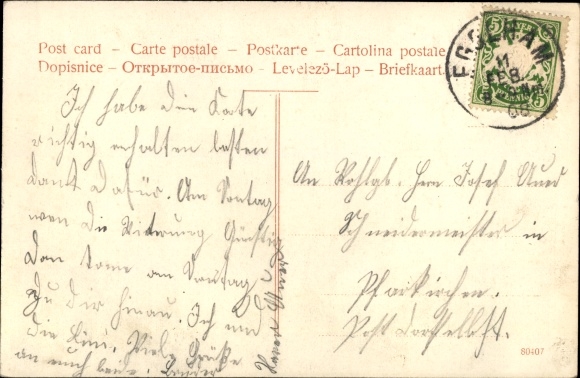 Post card – Carte postale – Postkarte – Cartolina postale
Dopisnice – Открытое-письмо – Levelező-Lap – Briefkaart
5 BAYERN 5
11
FEB
Ich habe die Kate
richtig erhalten besten
dank dafür. Am Sontag
wen die Witerung günstig
dan kome am Sontag
zu dir hinau. Ich und
die Lini. Viele Grüße
an euch beide.
An Wohlgb. Hern Josef
Schneidermeister in
Pfarkirchen.
Post
80407